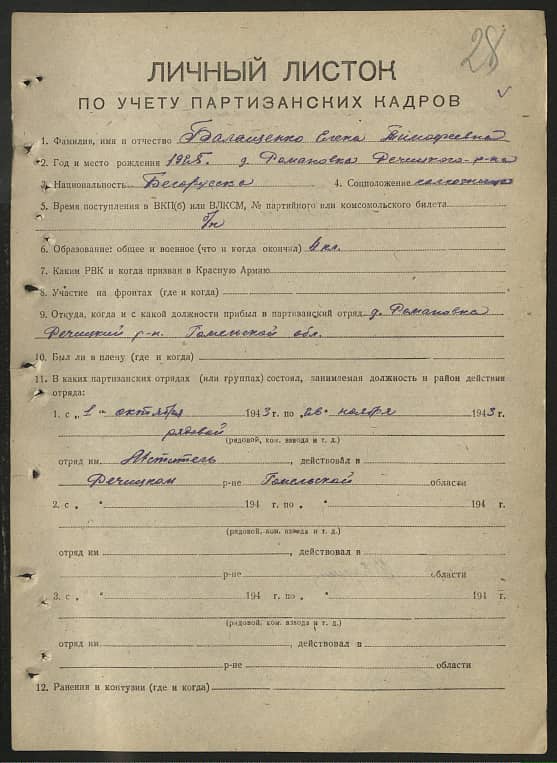 28
ЛИЧНЫЙ ЛИСТОК
ПО УЧЕТУ ПАРТИЗАНСКИХ КАДРОВ
1. Фамилия, имя и отчество Балащенко Елена Тимофеевна
2. Год и место рождения 1925. д. Романовка Речицкого р-на
3. Национальность Белорусска 4. Соцположение колхозница
5. Время поступления в ВКП(б) или ВЛКСМ, № партийного или комсомольского билета
б/п
6. Образование: общее и военное (что и когда окончил) 4 кл.
7. Каким РВК и когда призван в Красную Армию
8. Участие на фронтах (где и когда)
9. Откуда, когда и с какой должности прибыл в партизанский отряд д. Романовка
Речицкий р-н. Гомельской обл.
10. Был ли в плену (где и когда)
11. В каких партизанских отрядах (или группах) состоял, занимаемая должность и район действия
отряда:
1. с „1" октября 1943 г. по „26" ноября 1943 г.
рядовой
(рядовой, ком. взвода и т. д.)
отряд им. Мститель, действовал в
Речицком р-не Гомельской области
2. с „ " 194 г. по „ " 194 г.
(рядовой, ком. взвода и т. д.)
отряд им , действовал в
р-не области
3. с „ " 194 г. по „ " 194 г.
(рядовой, ком. взвода и т. д.)
отряд им , действовал в
р-не области
12. Ранения и контузии (где и когда)